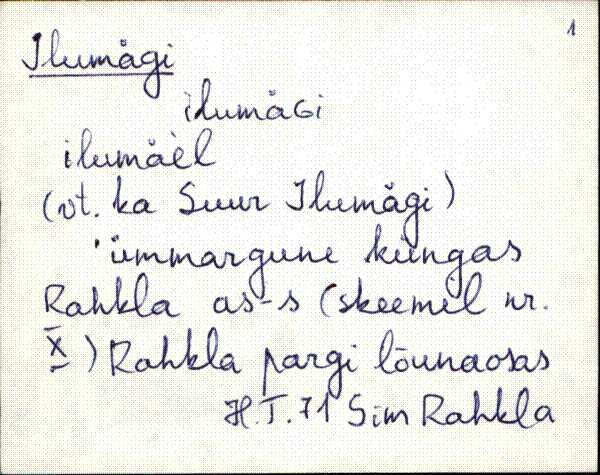 1
Ilumägi
ilumäGi
ilumäèl
(vt. ka Suur Ilumägi)
'ümmargune küngas
Rahkla as-s (skeemil nr.
X) Rahkla pargi lõunaosas
H.T. 71 Sim Rahkla